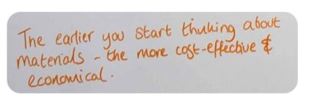 The earlier you start thinking about
materials - the more cost-effective &
economical.